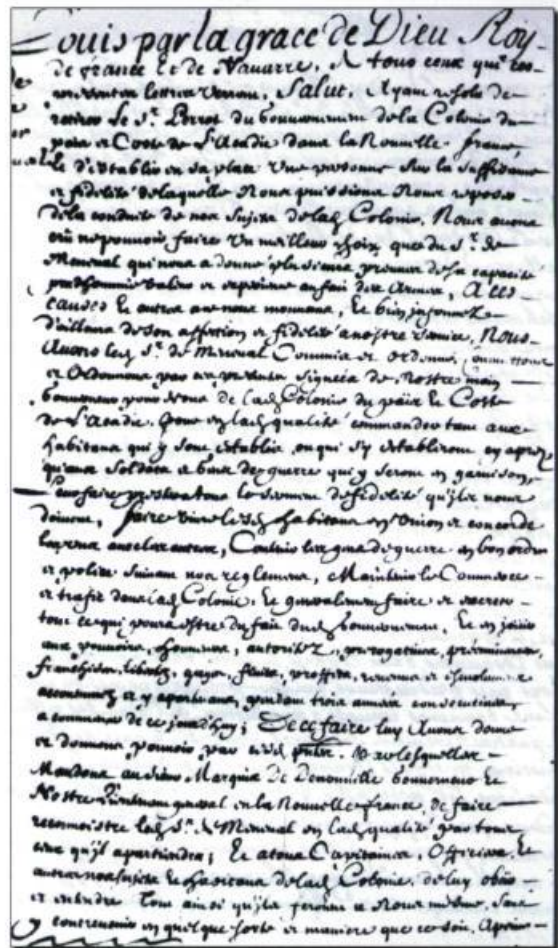 Louis par la grace de Dieu Roy
de france Et de Navarre, A tous ceux qui ces
presentes lettres verront, Salut. Ayant resolu de
retirer Le Sr. Perrot du Gouvernement de la Colonie du
pais et Coste de L'Acadie dans la Nouvelle france,
Et d'establir en sa place Une personne Sur la suffisance
et fidelité de laquelle Nous puissions Nous reposer
de la conduite de nos Sujets de lad. Colonie, Nous avons
crû ne pouvoir faire Un meilleur choix que du Sr. de
Meneval qui nous a donné plusieurs preuves de sa capacité
valeur et experience au fait des Armes, A Ces
causes Et autres a ce nous mouvans, Et bien informez
d'ailleurs de son affection et fidelité a nostre service, Nous
Avons led. Sr. de Meneval Commis et Ordonné, Commettons
et Ordonnons par ces presentes Signées de Nostre main
Gouverneur pour Nous de lad. Colonie du païs Et Coste
de L'Acadie. pour en lad. qualité commander tant aux
habitans qui y sont establis, ou qui s'y establiront cy apres
qu'aux Soldats et gens de guerre qui y seront en garnison,
Leur faire prester a tous le serment de fidelité qu'ils nous
doivent, faire vivre lesd. habitans en Union et concorde
les uns avec les autres, Contenir les gens de guerre en bon ordre
et police suivant nos reglemens, Maintenir le Commerce
et trafic dans lad. Colonie. Et generalement faire et
tout ce qui pourra estre du fait dud. Gouvernement, Et en jouir
aux pouvoirs, honneurs, autoritez, prerogatives, preeminences,
franchises, libertez, gages, fruits, proffits, revenus et
accoutumez et y apartenans, pendant trois années consecutives,
a commencer de ce jourd'huy; De ce faire luy Avons donné
et donnons pouvoir par cesd. Par lesquelles
Mandons au Sieur Marquis de Denonville Gouverneur Et
Nostre Lieutenant general en la Nouvelle france, de faire
reconnoistre led. Sr. de Meneval en lad. qualité par tous,
ceux qu'il apartiendra; Et a tous Capitaines, Officiers, Et
autres nos sujets Et habitans de lad. Colonie, de luy obeir
et entendre Tout ainsi qu'ils feroient a Nous mesme, Sans
y contrevenir en quelque sorte et maniere que ce soit, Apeine